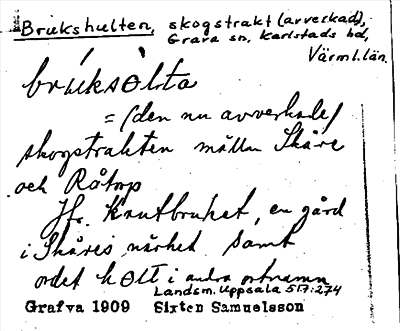 Brukshulten, skogstrakt (avverkad),
Grava sn, Karlstads hd,
Värml. län.
brúksòlta
= (den nu avverkade)
skogstrakten mällan Skåre
och Råtorp
Jfr. Knutbruket, en gård
i Skåres närhet samt
ordet hòlt i andra ortnamn
Landsm. Uppsala 517:274
Grafva 1909 Sixten Samuelsson